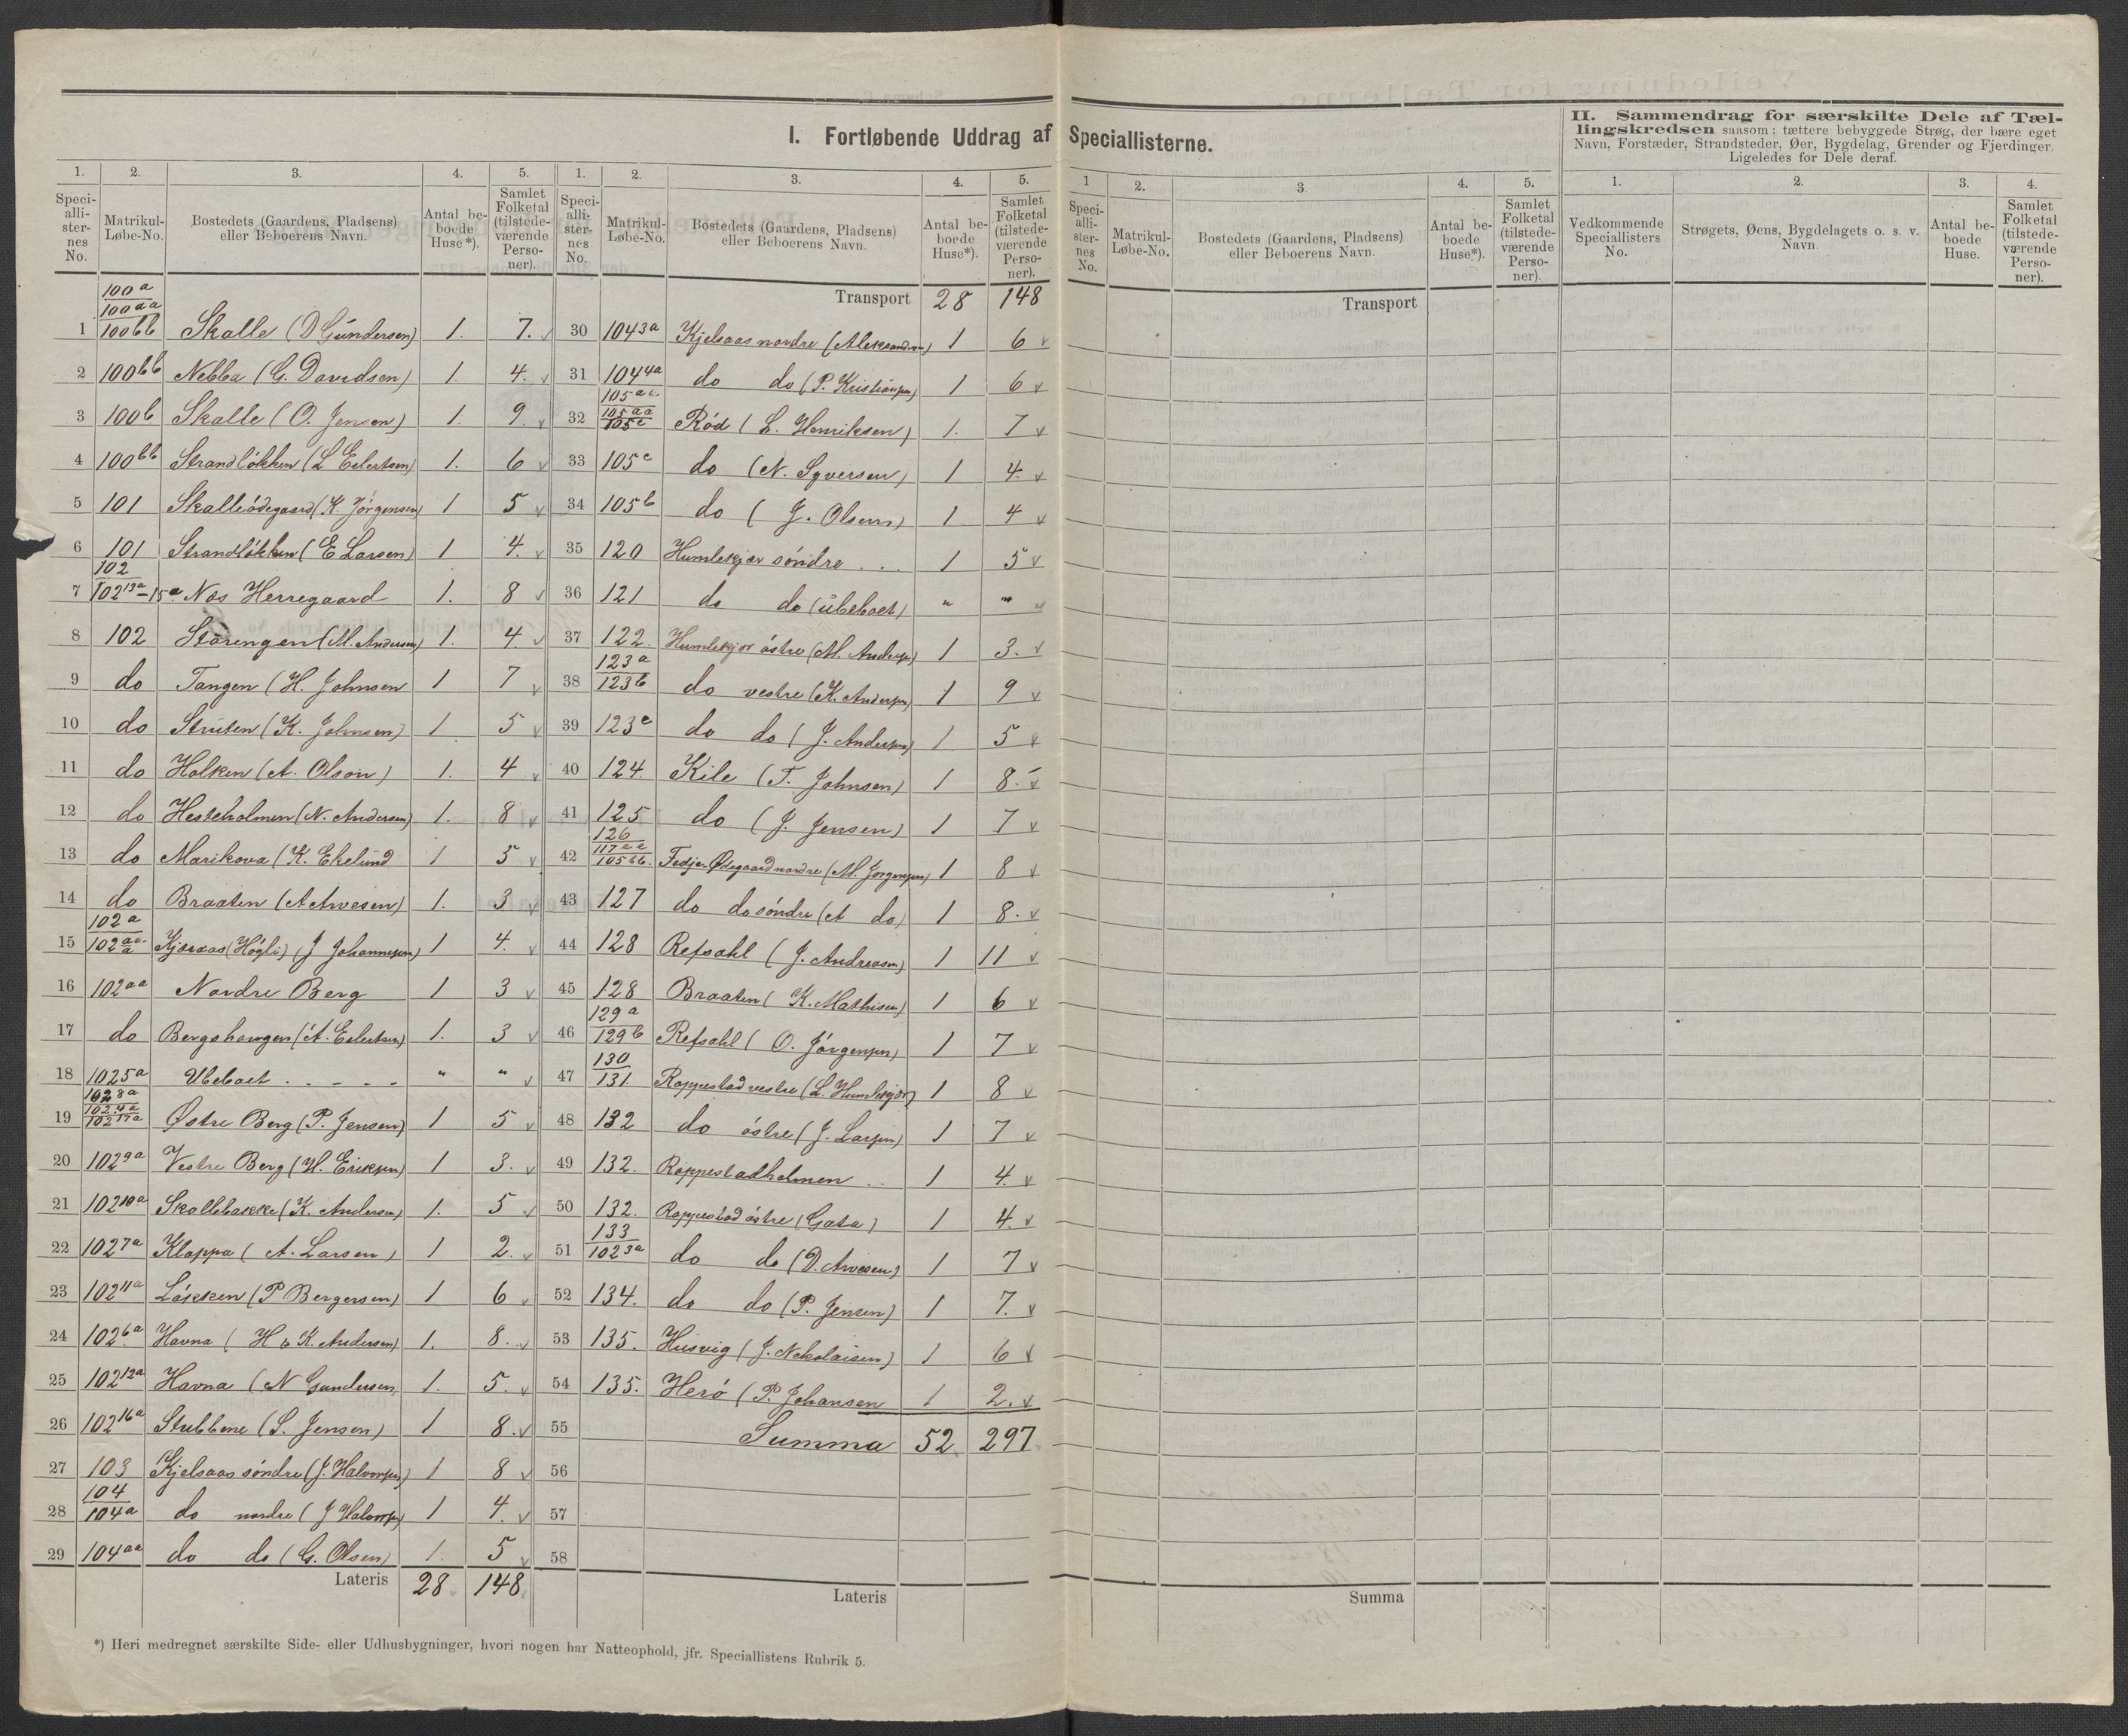 I. Fortløbende Uddrag af Speciallisterne.
II. Sammendrag for særskilte Dele af Tæl-
lingskredsen saasom: tættere bebyggede Strøg, der bære eget
Navn, Forstæder, Strandsteder, Øer, Bygdelag, Grender og Fjerdinger.
Ligeledes for Dele deraf.
1. 2. 3. 4. 5.
Speci-
alli-
ster-
nes
No.
Matrikul-
Løbe-No.
Bostedets (Gaardens, Pladsens)
eller Beboerens Navn.
Antal be-
boede
Huse*).
Samlet
Folketal
(tilstede-
værende
Perso-
ner).
100a
100aa
1 100bb Skalle (D Gündersen) 1. 7.
2 100bb Nebba (G. Davidsen) 1. 4.
3 100b Skalle (O. Jensen) 1. 9.
4 100bb Strandløkken (L Eilertsen) 1. 6
5 101 Skalleødegaard (K. Jørgensen) 1 5
6 101 Strandløkken (E Larsen) 1 4.
102
7 102 13a-15a. Næs Herregaard 1. 8
8 102 Storengen (M. Andersen) 1. 4.
9 do Tangen (H. Johnsen 1 7
10 do Struten (K. Johnsen) 1 5
11 do Holken (A. Olson) 1. 4
12 do Hesteholmen (N. Andersen) 1. 8
13 do Marikova (K. Ekelünd 1 5
14 do Braaten (A Arvesen) 1. 3
102a
15 102aa Kjæraas (Høgli) (J Johannesen) 1 4.
16 102aa Nordre Berg 1 3
17 do Bergshaugen (A. Eilertsen) 1. 3
18 102 5a Ubeboet . . - - - " "
102 8a
102 4a
19 102 17a Østre Berg (P. Jensen) 1 5
20 102 9a Vestre Berg (H. Eriksen) 1 3.
21 102 10a Skollebakke (K. Andersen) 1. 5
22 102 7a Kloppa (A. Larsen) 1 2.
23 102 11a Løkken (P Bergersen) 1 6
24 102 6a Havna (H & K. Andersen) 1. 8.
25 102 12a Havna (N Gundersen 1. 5.
26 102 16a Stubbene (S. Jensen) 1 8.
27 103 Kjelsaas søndre (J. Halvorsen) 1 8
104
28 104a do nordre (J Halvorsen) 1 4.
29 104aa do do (G. Olsen) 1. 5
Lateris 28 148
1. 2. 3. 4. 5.
Speci-
alli-
ster-
nes
No.
Matrikul-
Løbe-No.
Bostedets (Gaardens, Pladsens)
eller Beboerens Navn.
Antal be-
boede
Huse*).
Samlet
Folketal
(tilstede-
værende
Perso-
ner).
Transport 28 148
30 104 3a Kjelsaas nordre (Aleksandersen) 1 6
31 104 4a do do (P. Kristiansen) 1 6
105a
105aa
32 105c Rød (L. Henriksen) 1. 7
33 105c do (N. Syversen) 1 4.
34 105b do (J. Olsen) 1 4
35 120 Humlekjær søndre . . . 1 5
36 121 do do (übeboet) " "
37 122. Humlekjær østre (M. Andersen) 1 3.
123a
38 123b do vestre (K. Andersen) 1 9
39 123c do do (J. Andersen) 1 5
40 124. Kile (T. Johnsen) 1 8.
41 125 do (J. Jensen) 1 7
126
117aa
42 105bb. Fedje-Ødegaard nordre (M. Jørgensen) 1 8
43 127 do do søndre (A do) 1 8.
44 128 Refsahl (J. Andreasen) 1 11
45 128 Braaten (K. Mathisen) 1 6
129a
46 129b Refsahl (O. Jørgensen) 1 7
130
47 131. Roppestad vestre (L. Humlekjær) 1 8
48 132 do østre (J. Larsen) 1 7
49 132. Roppestadholmen . . 1 4.
50 132. Roppestad østre (Gata) 1 4.
133
51 102 3a do do (D. Arvesen) 1 7
52 134. do do (P. Jensen) 1 7.
53 135. Husvig (J. Nikolaisen) 1 6
54 135. Herø (P. Johansen 1 2.
55 Summa 52 297
56
57
58
Lateris
1 2. 3. 4. 5.
Speci-
alli-
ster-
nes
No.
Matrikul-
Løbe-No.
Bostedets (Gaardens, Pladsens)
eller Beboerens Navn.
Antal be-
boede
Huse*).
Samlet
Folketal
(tilstede-
værende
Perso-
ner).
Transport
Summa
1. 2. 3. 4.
Vedkommende
Speciallisters
No.
Strøgets, Øens, Bygdelagets o. s. v.
Navn.
Antal be-
boede
Huse.
Samlet
Folketal
(tilstede-
værende
Perso-
ner).
*) Heri medregnet særskilte Side- eller Udhusbygninger, hvori nogen har Natteophold, jfr. Speciallistens Rubrik 5.